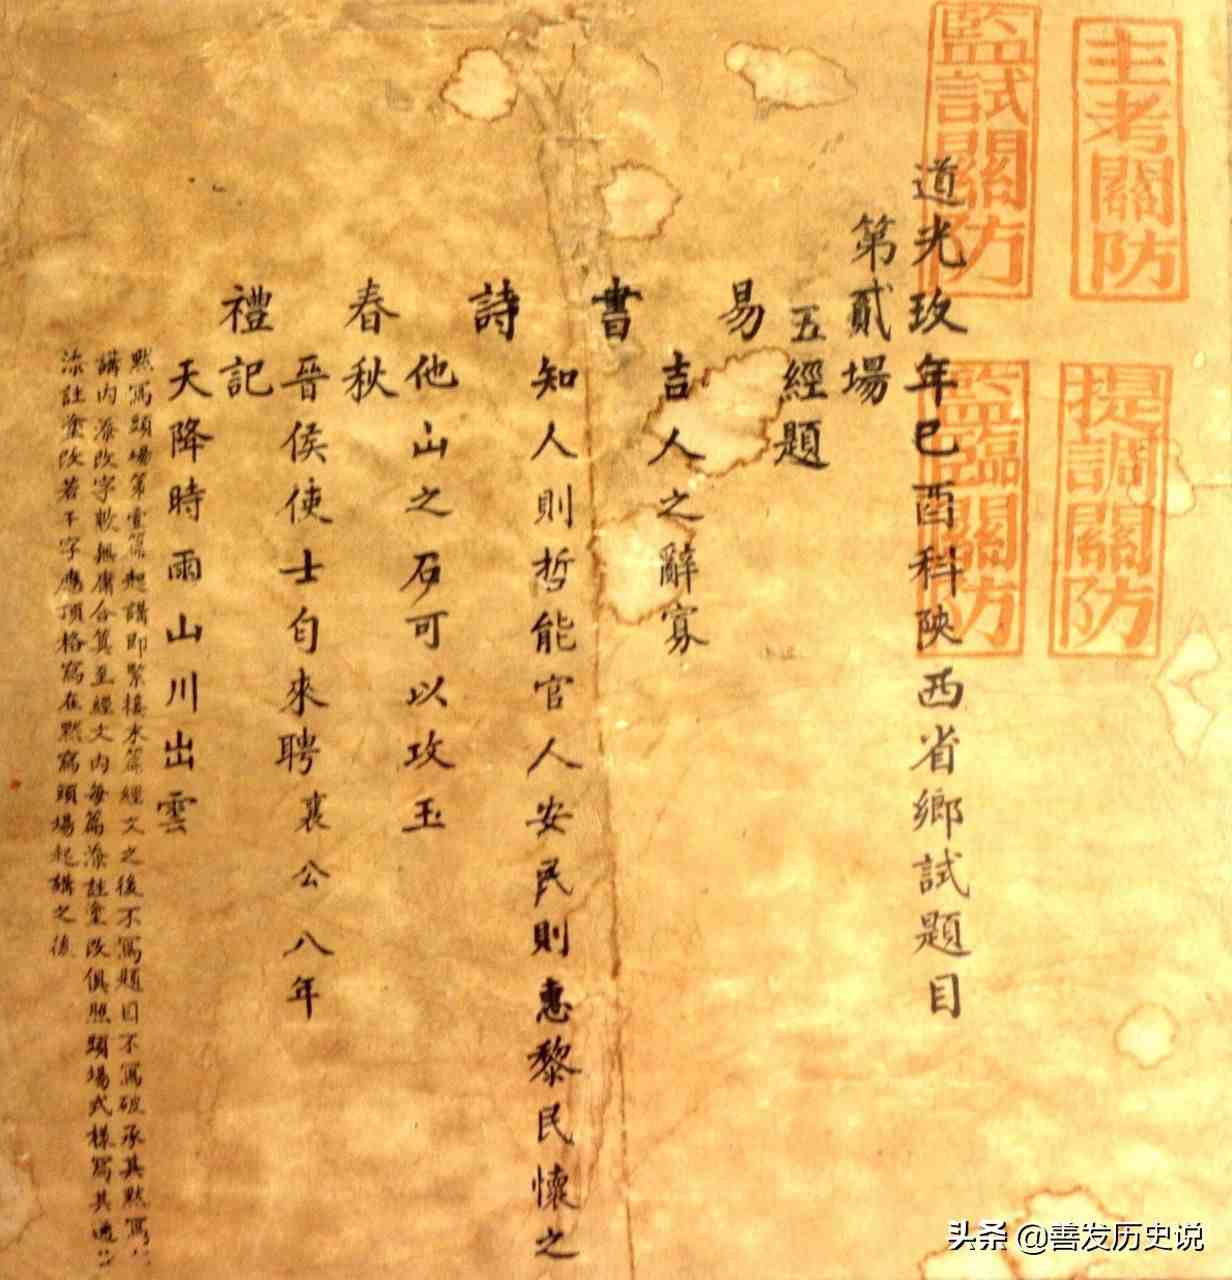 主考關防
提調關防
監試關防
監臨關防
道光玖年巳酉科陝西省鄉試題目
第貳場
五經題
易
吉人之辭寡
書
知人則哲能官人安民則惠黎民懷之
詩
他山之石可以攻玉
春秋
晉侯使士匄來聘襄公八年
禮記
天降時雨山川出雲
默寫頭場第壹篇起講即緊接末篇經文之後不寫題目不寫破承其默寫
講內添改字數無庸合算至經文內每篇添註塗改俱照頭場式樣寫其通
添註塗改若干字應頂格寫在默寫頭場起講之後
头条 @善发历史说